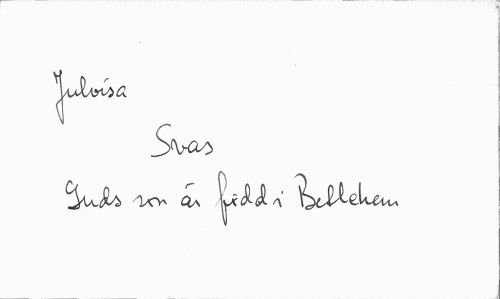 Julvisa
Svas
Guds son är född i Betlehem